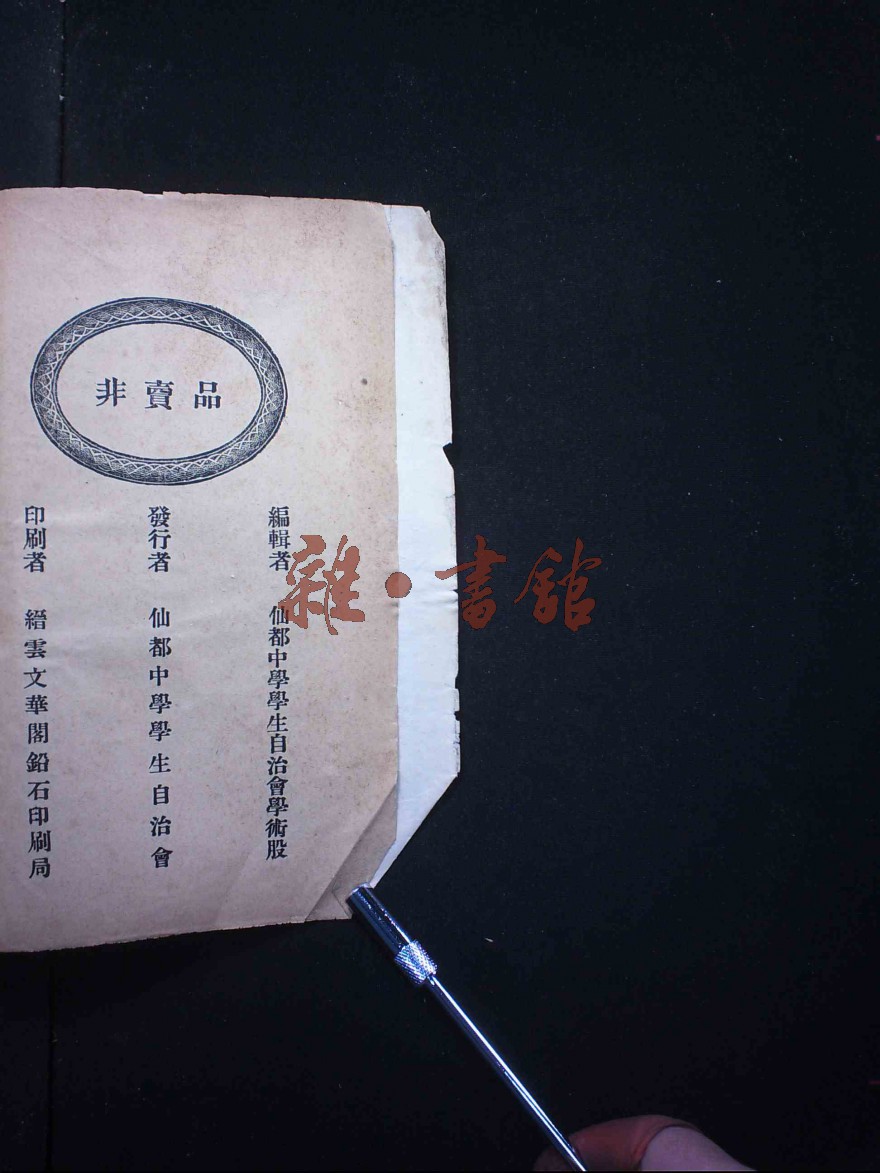 非賣品
編輯者 仙都中學學生自治會學術股
發行者 仙都中學學生自治會
印刷者 縉雲文華閣鉛石印刷局
雜·書館